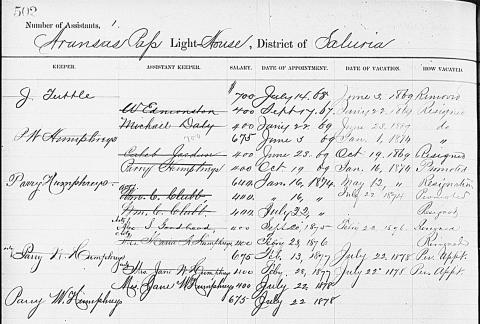 502
Number of Assistants,
Aransas Pass Light-House, District of Saluria
KEEPER. ASSISTANT KEEPER. SALARY. DATE OF APPOINTMENT. DATE OF VACATION. HOW VACATED.
J. Tuttle $700 July 14. 68 June 3. 1869 Removed
W Edmonston 400 Sept 17. 67 Jan'y 22. 1869 Resigned
Michael Daly 400 Jan'y 22 69 June 23. 1869 do
S W Humphreys 675 June 3 69 Jan. 1, 1874 "
400 June 23. 69 Oct 19. 1869 Resigned
Parry Humphreys 400 Oct 19 69 Jan. 16, 1874 Promoted
Parry Humphreys 600 Jan. 16, 1874. May 12, " Resignation
Wm. C. Clubb, 400. " 16, " July 22. 1874 Promoted
Wm. C. Clubb, 400. July 22, "
400 Sept 20 1875 Feb'y 22 1876. Resigned
Humphreys 400 Feb'y 23, 1876 Resigned
Parry W. Humphreys 675 Feb. 13, 1877 July 22, 1878 Per. Appt.
Mrs. Jane W Humphreys 400 Feb. 28, 1877 July 22 1878 Per. Appt.
Mrs. Jane W Humphreys 400 July 22, 1878
Parry W Humphreys 675 July 22 1878